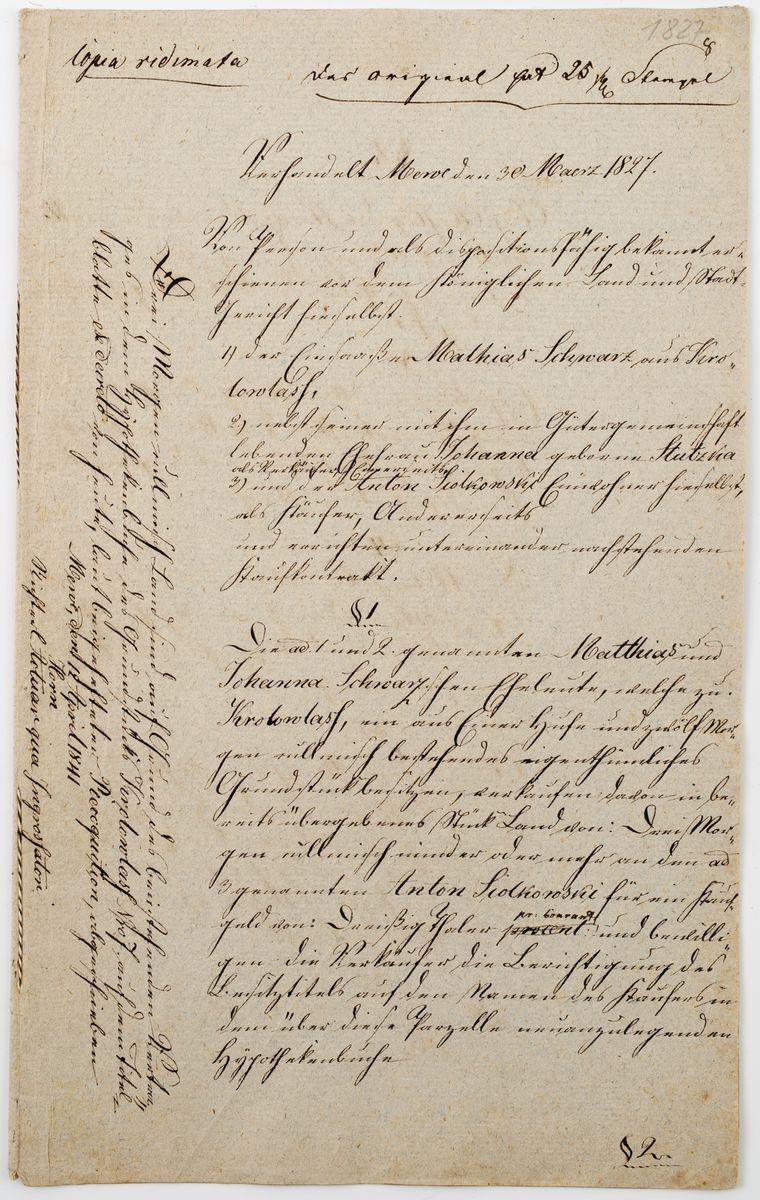 1827
8
Copia vidimata
Das Original hat 25 Stempel
Verhandelt Mewe den 30 Maerz 1827.
Von Person und als dispositionsfähig bekannt er-
schienen vor dem Königlichen Land und Stadt-
Gericht hieselbst.
1) der Einsaaße Mathias Schwarz aus Kro-
lowlash,
2) nebst seiner mit ihm in Gütergemeinschaft
lebenden Ehefrau Johanna geborne Stutzka
als Verkäufer Einerseits
3) und der Anton Siolkowski Einwohner hieselbst,
als Käufer, Andererseits
und errichten untereinander nachstehenden
Kaufkontrakt.
§ 1
Die ad 1 und 2. genannten Matthias und
Johanna Schwarzschen Eheleute, welche zu
Krolowlash, ein aus Einer Hufe und zwölf Mor-
gen cullmisch bestehendes eigenthümliches
Grundstück besitzen, verkaufen davon in be-
reits übergebenes Stück Land von: Drei Mor-
gen cullmisch minder oder mehr an den ad
3 genannten Anton Siolkowski für ein Kauf-
geld von: Dreißig Thaler pr: Courant und bewilli-
gen die Verkäufer die Berichtigung des
Besitztitels auf den Namen des Käufers in
dem über diese Parzelle neuanzulegenden
Hypothekenbuche
§ 2.
Drei Morgen cullmisch Land sind auf Grund des beistehenden Vertra-
ges in dem Hypothekenbuche des Grundstücks Krolowlash No 7. auf dem Titel-
blatte ex decreto von heute, laut beigehefteter Recognition, abgeschrieben
Mewe, den 12 April 1841
Horn
Actuar qua Ingrossator.